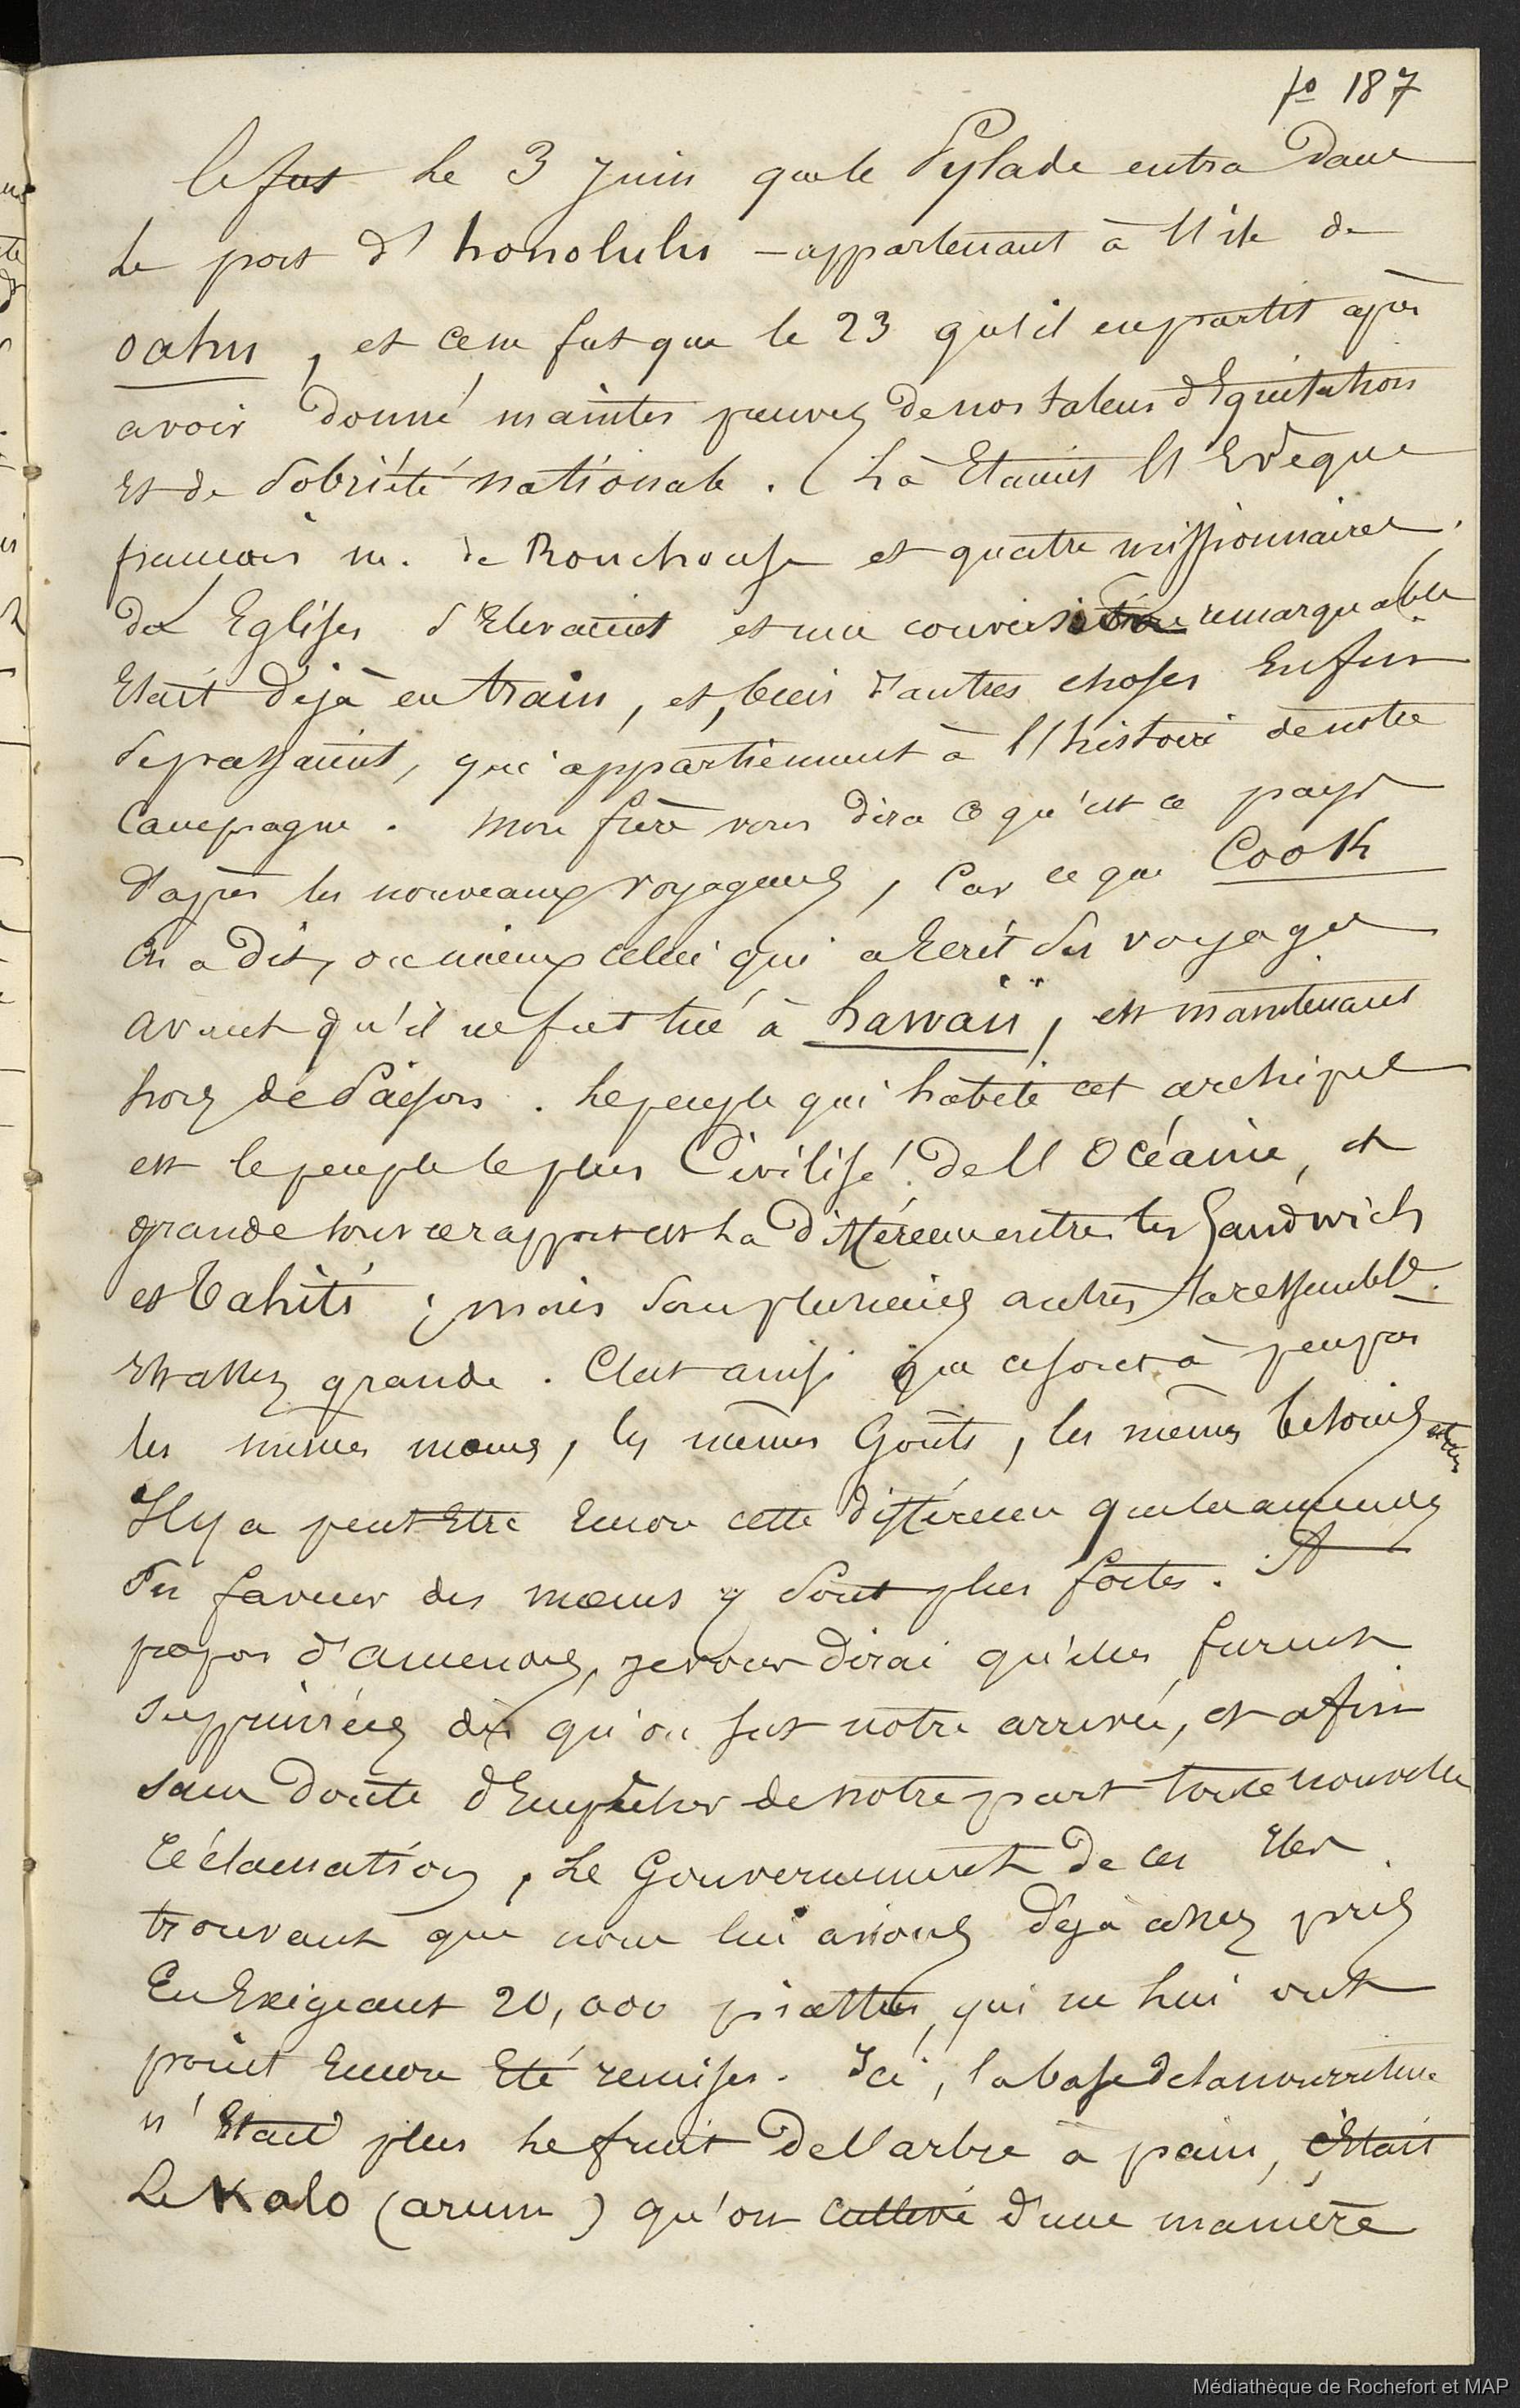 fo 187
Ce fut le 3 Juin que le Pylade entra dans
le port d'honolulu - appartenant à l'île de
oahu, et ce ne fut que le 23 qu'il en partit après
avoir donné maintes preuves de nos talens d'Equitation
Et de Sobriété nationale. (Là Etaient l'Evèque
francais m. de Rouchouse et quatre missionnaires.
des Eglises s'Elevaient et une conversion remarquable
Etait déjà en train, et, bien d'autres choses Enfin
se passaient, qui appartiennent à l'histoire de notre
Campagne. mon frère vous dira ce qu'est ce pays
d'après les nouveaux voyageurs, Car ce que Cook
En a dit, ou mieux celui qui a Ecrit ses voyages
avant qu'il ne fut tué à hawaii, est maintenant
hors de Saison. Le peuple qui habite cet archipel
est le peuple le plus Civilisé de l'Océanie, et
grande sous ce rapport est La différence entre les Sandwich
et Tahiti; mais sous plusieurs autres la ressemblce.
Est assez grande. C'est ainsi que ce sont à peu près
les mêmes moeurs, les mêmes Goûts, les mêmes besoins
Il y a peut Etre Encore cette différence que les amendes
En faveur des moeurs y sont plus fortes. A
propos d'amendes, je vous dirai qu'elles furent
supprimées dès qu'on sut notre arrivée, et afin
sans doute d'Empêcher de notre part toute nouvelle
réclamation, Le Gouvernement de ces Iles
trouvant que nous lui avions déjà assez pris
En Exigeant 20,000 piastres, qui ne lui ont
point Encore Eté remises. Ici, la base de la nourriture
n'Etait plus le fruit de l'arbre à pain, c'Etait
Le Kalo (arum) qu'on cultive d'une manière
Médiathèque de Rochefort et MAP